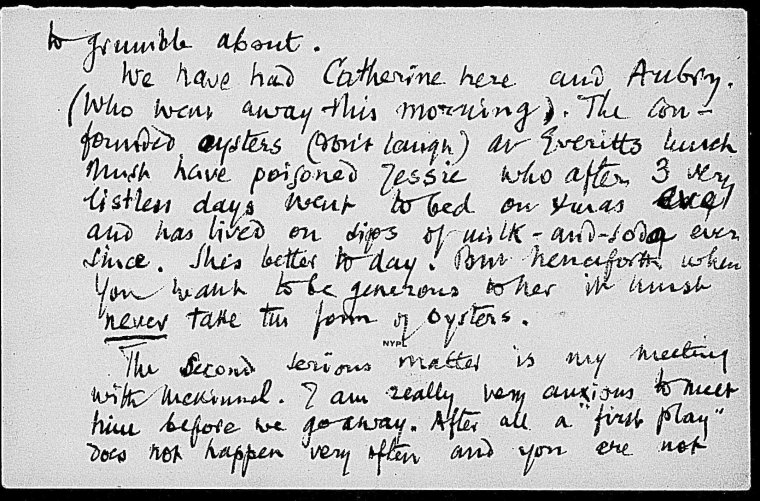 to grumble about.
We have had Catherine here and Aubry.
(Who went away this morning). The con-
founded oysters (don't laugh) at Everitts lunch
must have poisoned Jessie who after 3 very
listless days went to bed on Xmas eve
and has lived on sips of milk-and-soda ever
since. Shes better to day. But henceforth when
you want to be generous to her it must
never take the form of oysters.
NYPL
The second serious matter is my meeting
with McKinnel. I am really very anxious to meet
him before we go away. After all a "first play"
does not happen very often and you are not